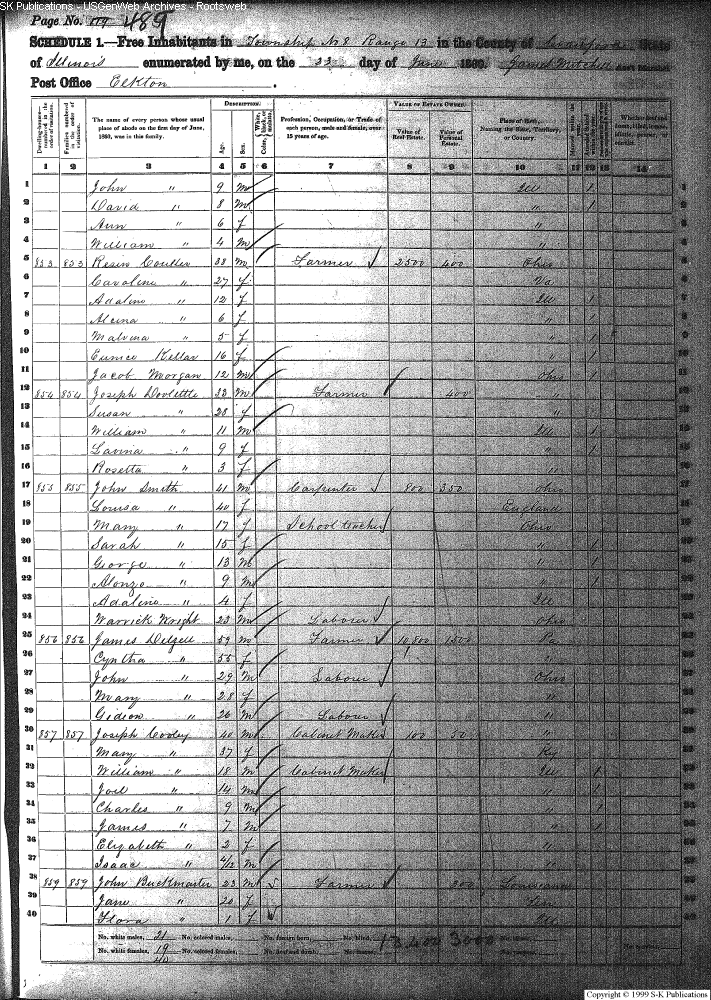 SK Publications - USGenWeb Archives - Rootsweb
Page No. 489
SCHEDULE 1.—Free Inhabitants in Township No 8 Range 13 in the County of State
of Illinois enumerated by me, on the 22 day of June 1860. James Mitchell Ass't Marshal.
Post Office Elkton
Dwelling-houses—numbered in the order of visitation.
Families numbered in the order of visitation.
The name of every person whose usual place of abode on the first day of June, 1860, was in this family.
DESCRIPTION.
Age.
Sex.
Color, White, black, or mulatto.
Profession, Occupation, or Trade of each person, male and female, over 15 years of age.
VALUE OF ESTATE OWNED.
Value of Real Estate.
Value of Personal Estate.
Place of Birth, Naming the State, Territory, or Country.
1 2 3 4 5 6 7 8 9 10 11 12 13 14
1 John " 9 m Ill 1
2 David " 8 m " 1
3 Ann " 6 f "
4 William " 4 m "
5 853 853 Resin Coulter 38 m Farmer 2500 400 Ohio
6 Caroline " 27 f Va
7 Adaline " 12 f Ill 1
8 Alcina " 6 f " 1
9 Malvina " 5 f " 1
10 Eunice Kellar 16 f " 1
11 Jacob Morgan 12 m Ohio
12 854 854 Joseph Doolettle 33 m Farmer 400 "
13 Susan " 28 f "
14 William " 11 m Ill 1
15 Lavina " 9 f " 1
16 Rosetta " 3 f "
17 855 855 John Smith 41 m Carpenter 800 350 Ohio
18 Louisa " 40 f England
19 Mary " 17 f School teacher Ohio
20 Sarah " 15 f " 1
21 George " 13 m " 1
22 Alonzo " 9 m " 1
23 Adaline " 4 f Ill
24 Warrick Wright 23 m Laborer Ohio
25 856 856 James Delzell 59 m Farmer 10,800 1500 Pa
26 Cyntha " 55 f "
27 John " 29 m Laborer Ohio
28 Mary " 28 f "
29 Gideon " 26 m Laborer "
30 857 857 Joseph Cooley 40 m Cabinet Maker 100 50 "
31 Mary " 37 f Ky
32 William " 18 m Cabinet Maker Ill 1
33 Joel " 14 m " 1
34 Charles " 9 m "
35 James " 7 m " 1
36 Elizabeth " 2 f "
37 Isaac " 4/12 m "
38 859 859 John Buckmaster 23 m Farmer 200 Louisiana
39 Jane " 20 f
40 Flora " 1 f
No. white males, 21 No. colored males, No. foreign born, No. blind, 13,400 3000
No. white females, 19 No. colored females, No. deaf and dumb,
40
Copyright © 1999 S-K Publications